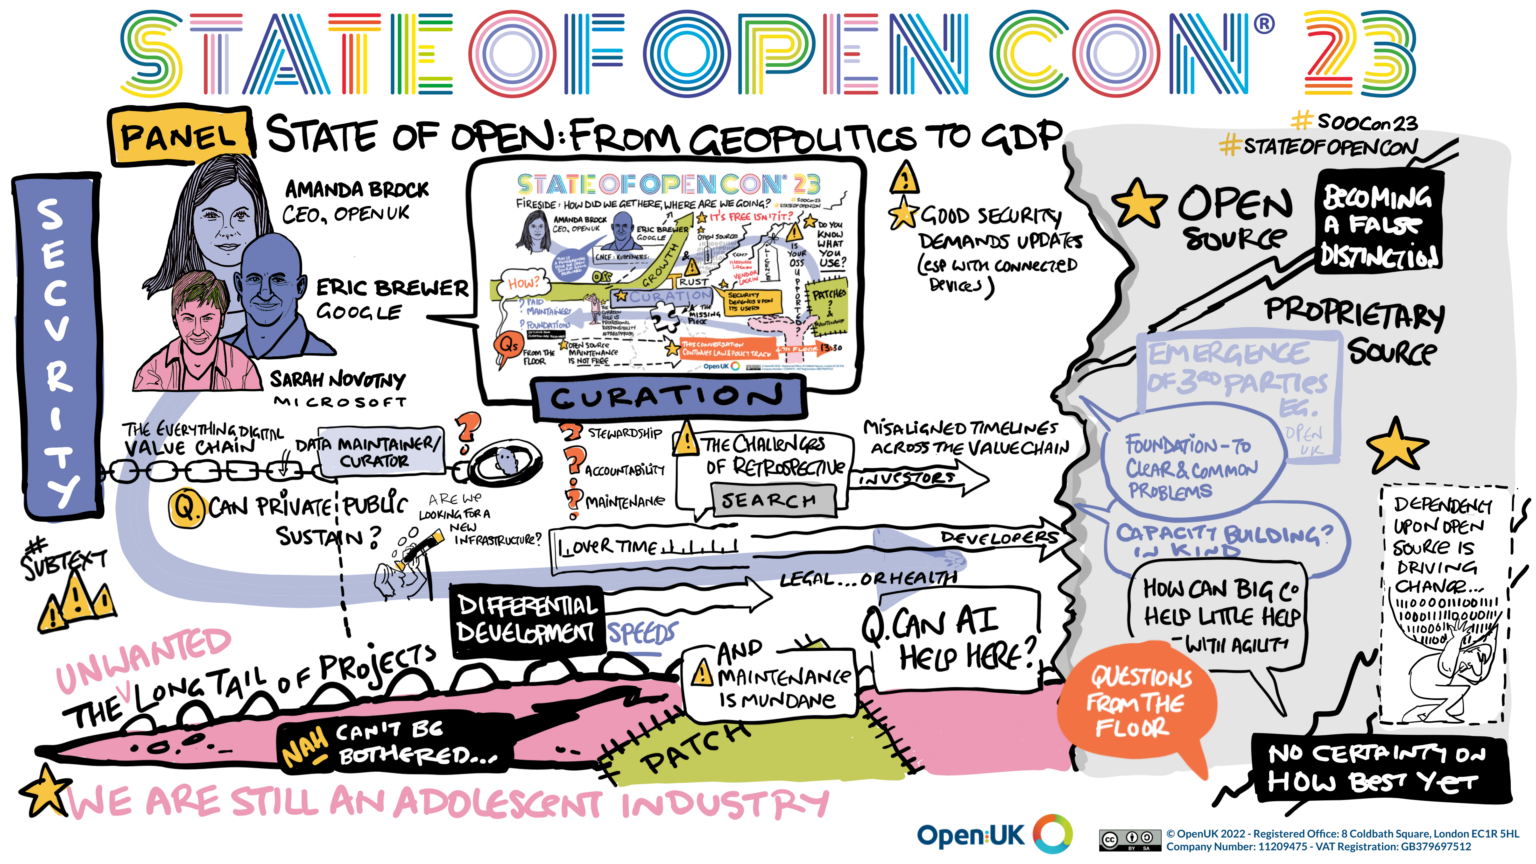 STATE OF OPEN CON® 23
PANEL
STATE OF OPEN: FROM GEOPOLITICS TO GDP
#SOOCon23
#STATEOFOPENCON
SECURITY
AMANDA BROCK
CEO, OPENUK
ERIC BREWER
GOOGLE
SARAH NOVOTNY
MICROSOFT
STATE OF OPEN CON® 23
FIRESIDE: HOW DID WE GET HERE, WHERE ARE WE GOING?
#SOOCON23
#STATEOFOPENCON
AMANDA BROCK
CEO, OPENUK
ERIC BREWER
GOOGLE
CNCF: KUBERNETES
GROWTH
IT'S FREE ISN'T IT?
OPEN SOURCE
IS YOUR OSS SUPPORTED?
DO YOU
KNOW
WHAT
YOU
USE?
HOW?
? PAID
MAINTAINERS
? FOUNDATION
RUST
CURATION
& THE
MISSING
PIECE
SECURITY
DEPENDS UPON
ITS USERS
VENDOR
LOCK IN
PATCHES
?
&
MAINTENANCE
Qs
FROM THE
FLOOR
OPEN SOURCE
MAINTENANCE
IS NOT FREE
THIS CONVERSATION
CONTINUES LAW & POLICY TRACK
4TH FLOOR
13:30
Open UK
CURATION
GOOD SECURITY
DEMANDS UPDATES
(ESP WITH CONNECTED
DEVICES)
OPEN
SOURCE
BECOMING
A FALSE
DISTINCTION
PROPRIETARY
SOURCE
EMERGENCE
OF 3RD PARTIES
EG.
OPEN
UK
FOUNDATION - TO
CLEAR & COMMON
PROBLEMS
CAPACITY BUILDING?
IN KIND
HOW CAN BIG Co
HELP LITTLE HELP
- WITH AGILITY
DEPENDENCY
UPON OPEN
SOURCE IS
DRIVING
CHANGE...
THE EVERYTHING DIGITAL
VALUE CHAIN
DATA MAINTAINER/
CURATOR
?
? STEWARDSHIP
? ACCOUNTABILITY
? MAINTENANCE
THE CHALLENGES
OF RETROSPECTIVE
SEARCH
MISALIGNED TIMELINES
ACROSS THE VALUE CHAIN
INVESTORS
Q. CAN PRIVATE PUBLIC
SUSTAIN?
ARE WE
LOOKING FOR A
NEW
INFRASTRUCTURE?
OVER TIME
DEVELOPERS
LEGAL... OR HEALTH
#
SUBTEXT
DIFFERENTIAL
DEVELOPMENT
SPEEDS
Q. CAN AI
HELP HERE?
UNWANTED
THE LONG TAIL OF PROJECTS
NAH CAN'T BE
BOTHERED...
PATCH
AND
MAINTENANCE
IS MUNDANE
QUESTIONS
FROM THE
FLOOR
NO CERTAINTY ON
HOW BEST YET
WE ARE STILL AN ADOLESCENT INDUSTRY
Open:UK
CC BY SA
© OpenUK 2022 - Registered Office: 8 Coldbath Square, London EC1R 5HL
Company Number: 11209475 - VAT Registration: GB379697512